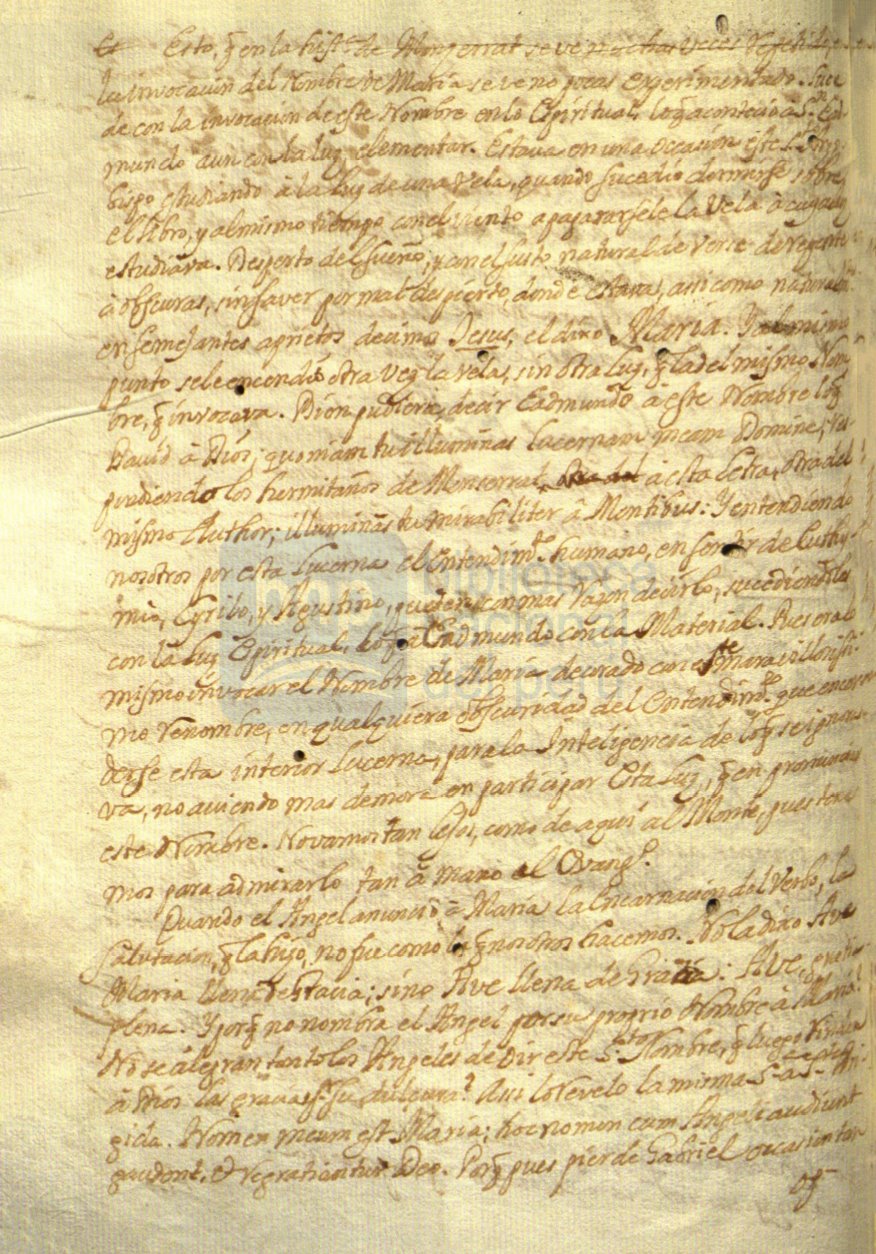 Esto, q̃ en la hist.ª de Monserrat se ve muchas veces repetido
la invocacion del Nombre de Maria se ve no pocas experimentado. Suce
de con la invocacion de este Nombre en lo Espiritual, lo q̃ acontecio à S.ⁿ Ed
mundo aun con la luz elementar. Estava en una ocasion este S.
bispo estudiando à la luz de una vela, quando sucedio dormirse sobre
el libro, y al mismo tiempo con el viento apagarsele la Vela à cuya luz
estudiava. Desperto del sueño, y con el susto natural de verse de repente
à obscuras, sin saver por mal despierto, donde estava, assi como natural
en semejantes aprietos decimos Jesus, el dixo Maria. Y al mismo
punto se le encendió otra vez la vela, sin otra luz, q̃ la del mismo Nom
bre, q̃ invocava. Bien pudiera decir Eadmundo à este Nombre lo q̃
David à Dios; quoniam tu illuminas lucernam meam Domine; res
pondiendo los hermitaños de Monserrat à esta letra, otra del
mismo Author; illuminans tu mirabiliter â Montibus: Y entendiendo
nosotros por esta lucerna el entendim.to humano, en sentir de Euthy
mio, Cyrilo, y Agustino, pueden con mas razon decirlo, sucediendoles
con la luz Espiritual, lo q̃ à Eadmundo con la Material. Pues era lo
mismo invocar el Nombre de Maria decorado con este maravillosissi
mo renombre, en qualquiera obscuridad del Entendim.to que encen
derse esta interior lucerna, para la Inteligencia de lo q̃ se ignora
va, no aviendo mas demora en participar esta luz, q̃ en pronunciar
este Nombre. No vamos tan lejos, como de aqui al Monte, pues tene
mos para admirarlo tan à mano el Evang.º
Quando el Angel anunció à Maria la Encarnacion del Verbo, la
salutacion, q̃ la hizo, no fue como la q̃ nosotros hacemos. No la dixo Ave
Maria llena de Gracia; sino Ave llena de Gracia: Ave, gratia
plena. Y porq̃ no nombra el Angel por su proprio Nombre à Maria?
No se alegran tanto los Angeles de oir este S.to Nombre, q̃ luego rinden
à Dios las gracias p.r su dulçura? Assi lo reveló la misma S.ª à S.ta Bri
gida. Nomen meum est Maria; hoc nomen cum Angeli audiunt
gaudent, et regratiantur Deo. Porq̃ pues pierde Gabriel ocasion tan
biblioteca
nacional
del perú